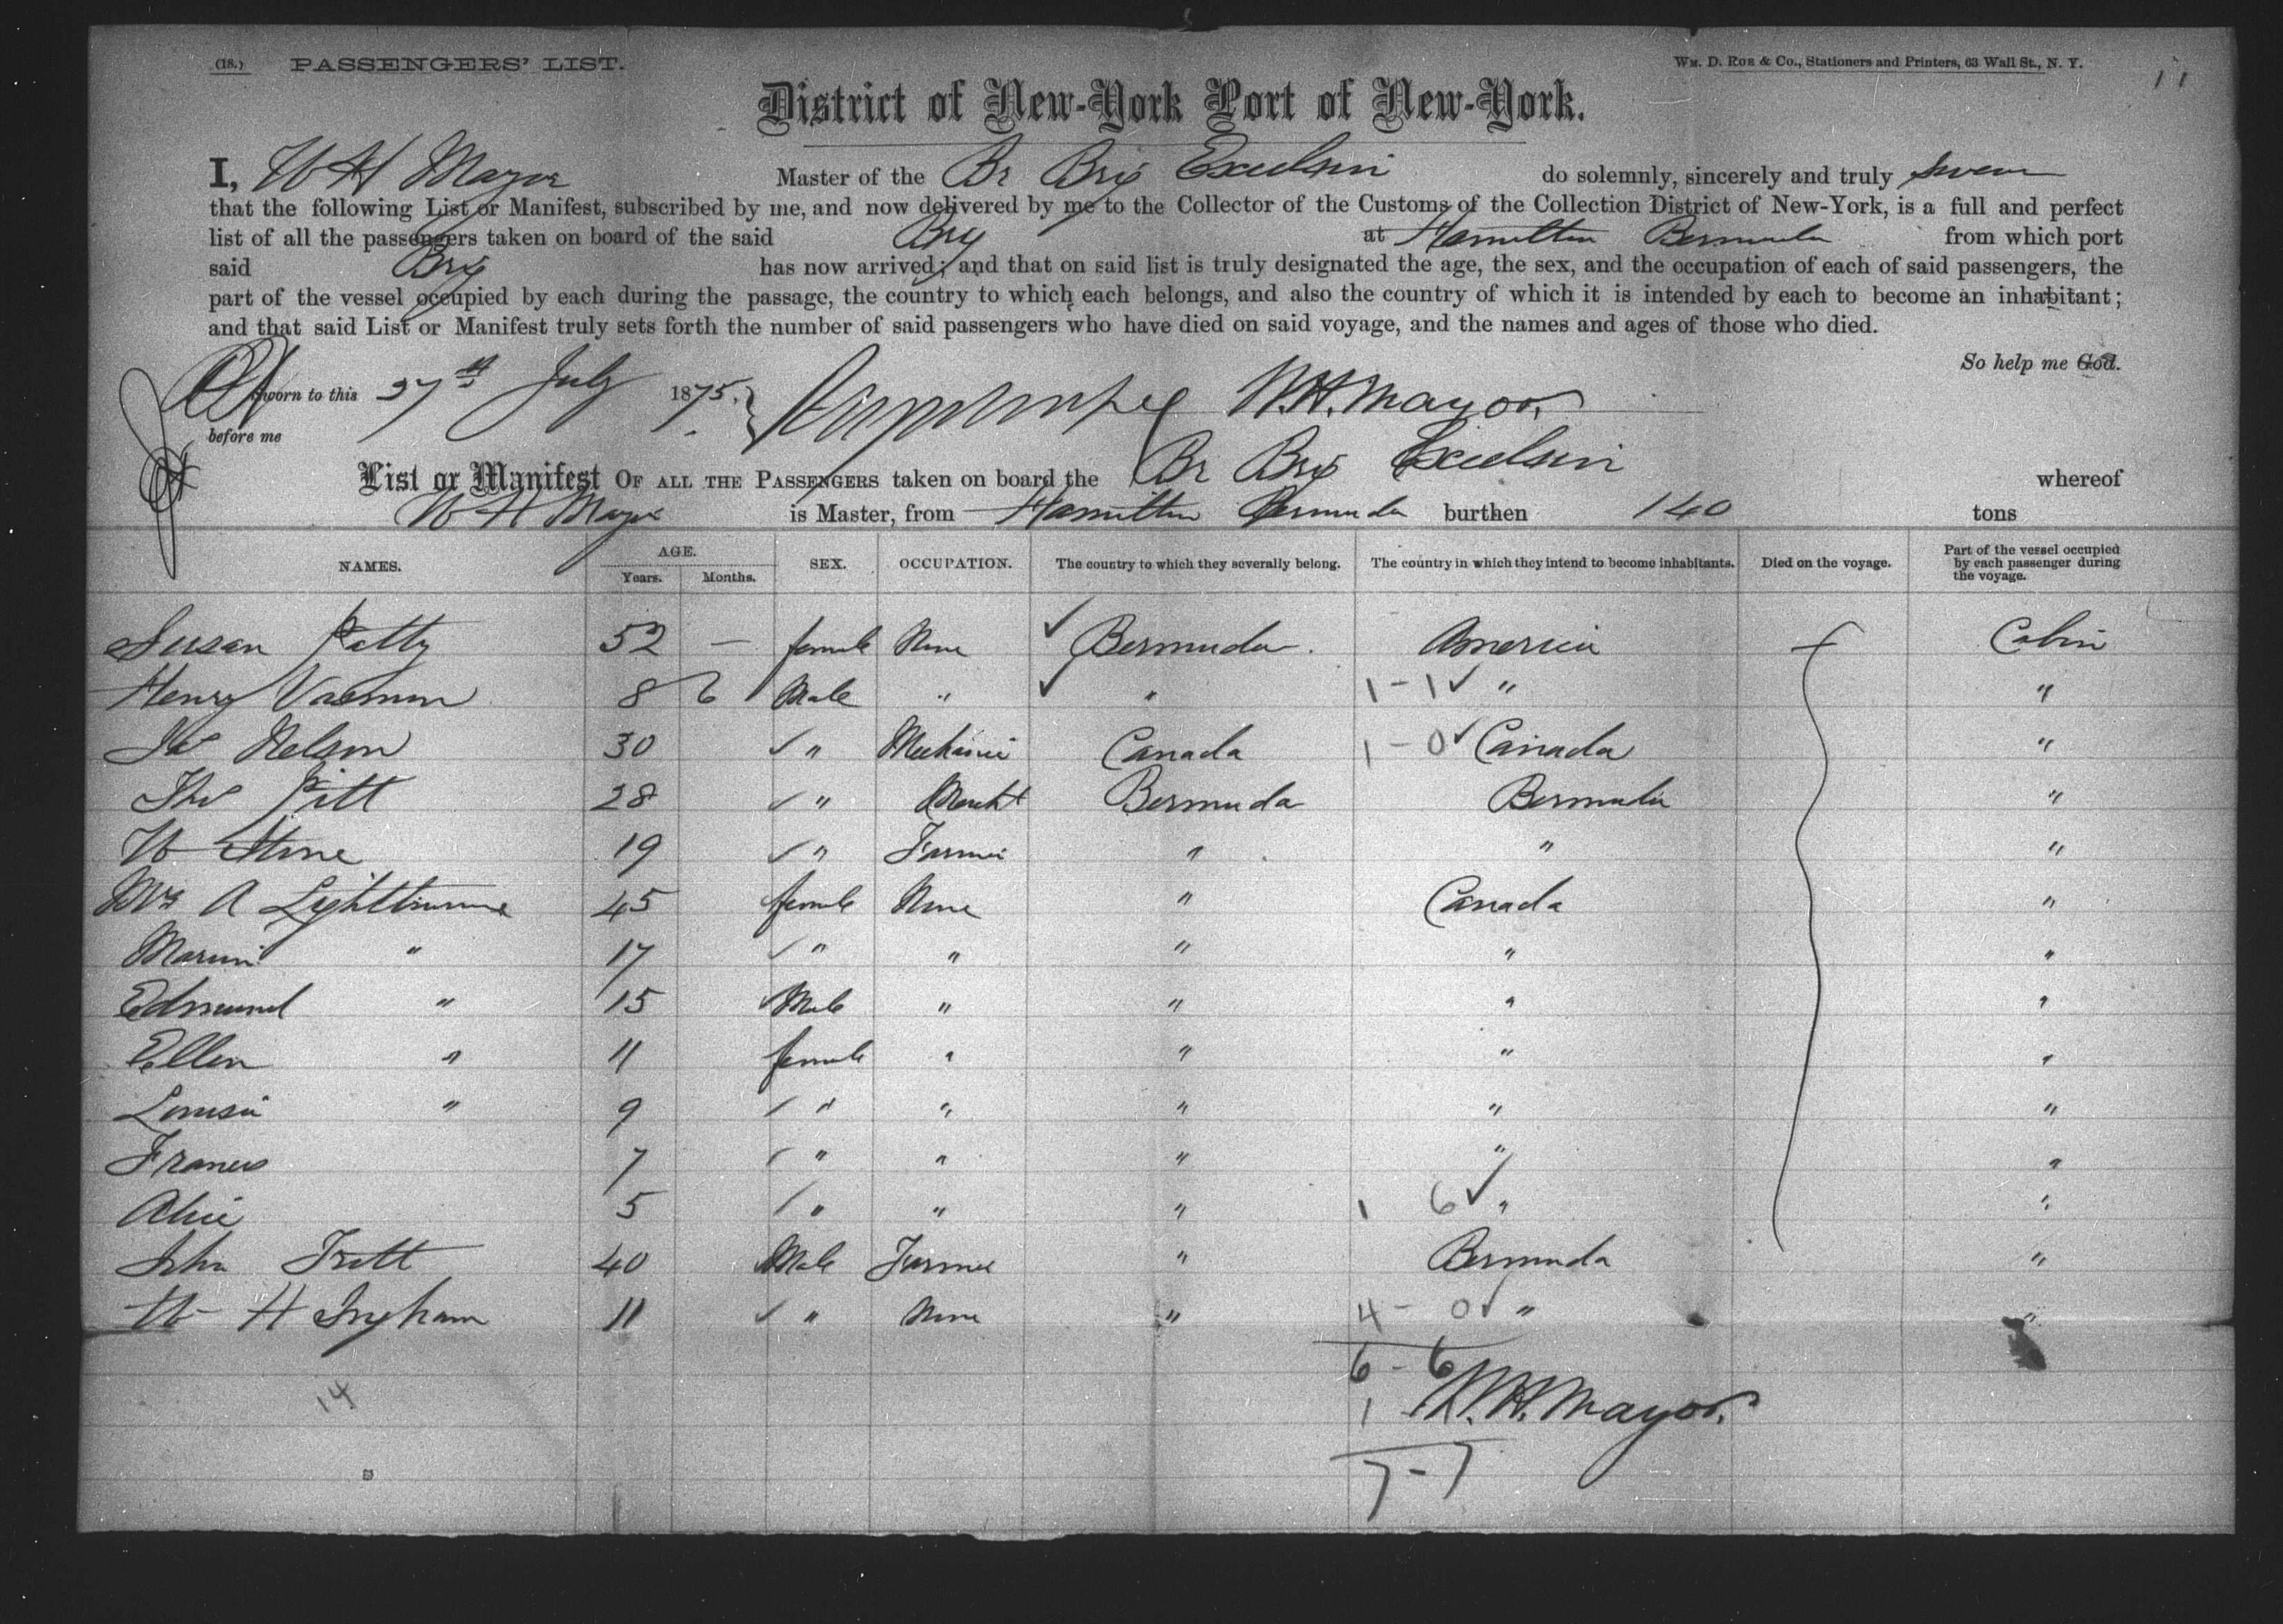 (18.) PASSENGERS' LIST. WM. D. ROE & Co., Stationers and Printers, 63 Wall St., N. Y.
District of New-York Port of New-York.
I, W H Mayor Master of the Br Brig Excelsior do solemnly, sincerely and truly swear
that the following List or Manifest, subscribed by me, and now delivered by me to the Collector of the Customs of the Collection District of New-York, is a full and perfect
list of all the passengers taken on board of the said Brig at Hamilton Bermuda from which port
said Brig has now arrived; and that on said list is truly designated the age, the sex, and the occupation of each of said passengers, the
part of the vessel occupied by each during the passage, the country to which each belongs, and also the country of which it is intended by each to become an inhabitant;
and that said List or Manifest truly sets forth the number of said passengers who have died on said voyage, and the names and ages of those who died.
So help me God.
Sworn to this 27th July 1875. W. H. Mayor.
before me
List or Manifest OF ALL THE PASSENGERS taken on board the Br Brig Excelsior whereof
W H Mayor is Master, from Hamilton Bermuda burthen 140 tons
NAMES. AGE. Years. Months. SEX. OCCUPATION. The country to which they severally belong. The country in which they intend to become inhabitants. Died on the voyage. Part of the vessel occupied by each passenger during the voyage.
Susan 52 — female None ✓ Bermuda. America Cabin
Henry 8 6 Male " ✓ " 1 - 1 ✓ " "
Nelson 30 ✓ " Mechanic Canada 1 - 0 ✓ Canada "
Thos Pitt 28 ✓ " Mercht Bermuda Bermuda "
W Stone 19 ✓ " Farmer " " "
Mrs A Lightbourne 45 female None " Canada "
" 17 ✓ " " " " "
Edmund " 15 Male " " " "
Ellen " 11 female " " " "
Louisa " 9 ✓ " " " " "
Frances 7 ✓ " " " " "
Alice 5 ✓ " " " 1 6 ✓ " "
John Trott 40 Male Farmer " Bermuda "
W H Ingham 11 ✓ " None " 4 - 0 ✓ " "
6 - 6
14 1 W. H. Mayor.
7 - 7